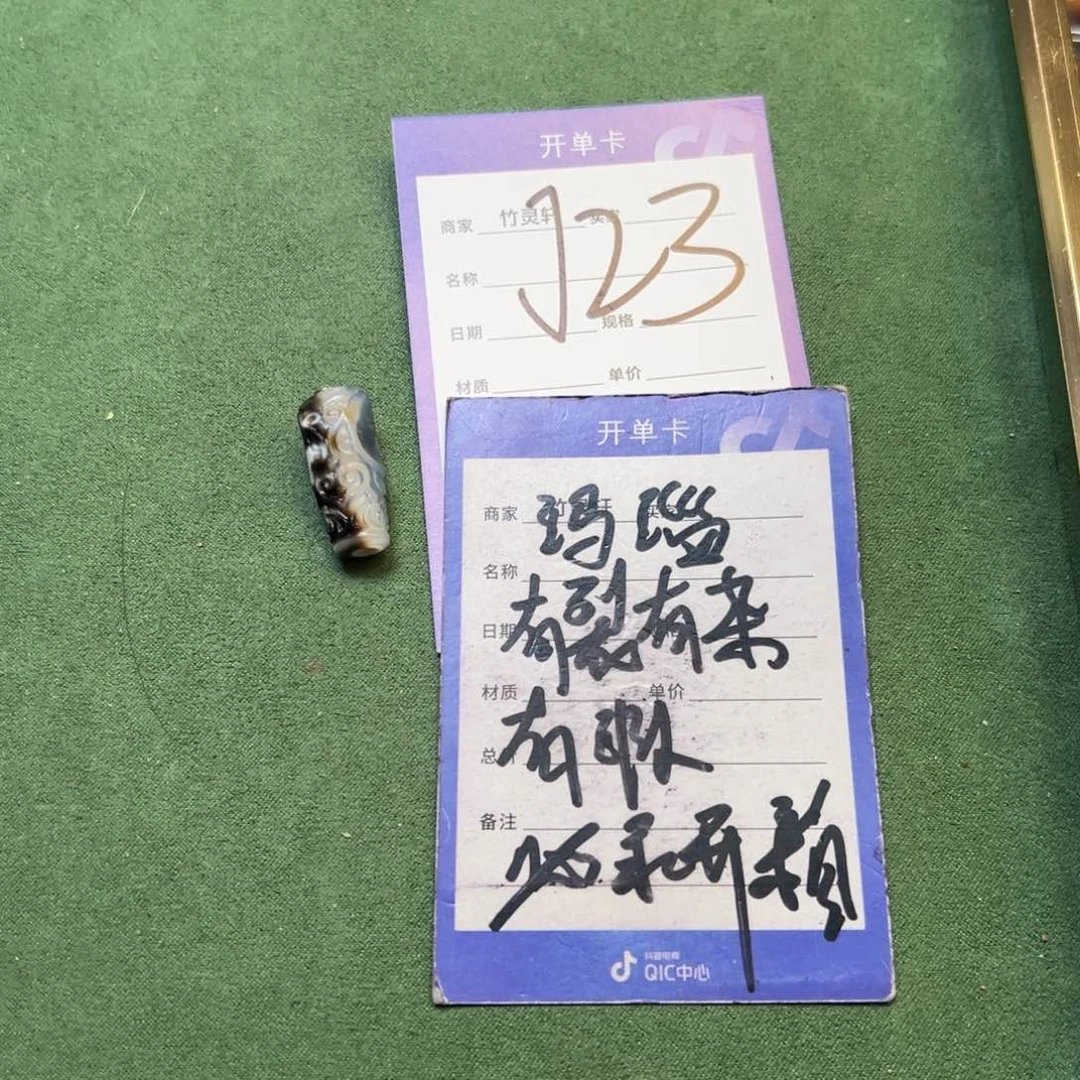 开单卡
商家 竹灵轩 买家
J23
名称
日期 规格
材质 单价
开单卡
商家
玛瑙
名称
有裂有杂
日期
材质 单价
有瑕
总
备注
抖音电商
QIC中心